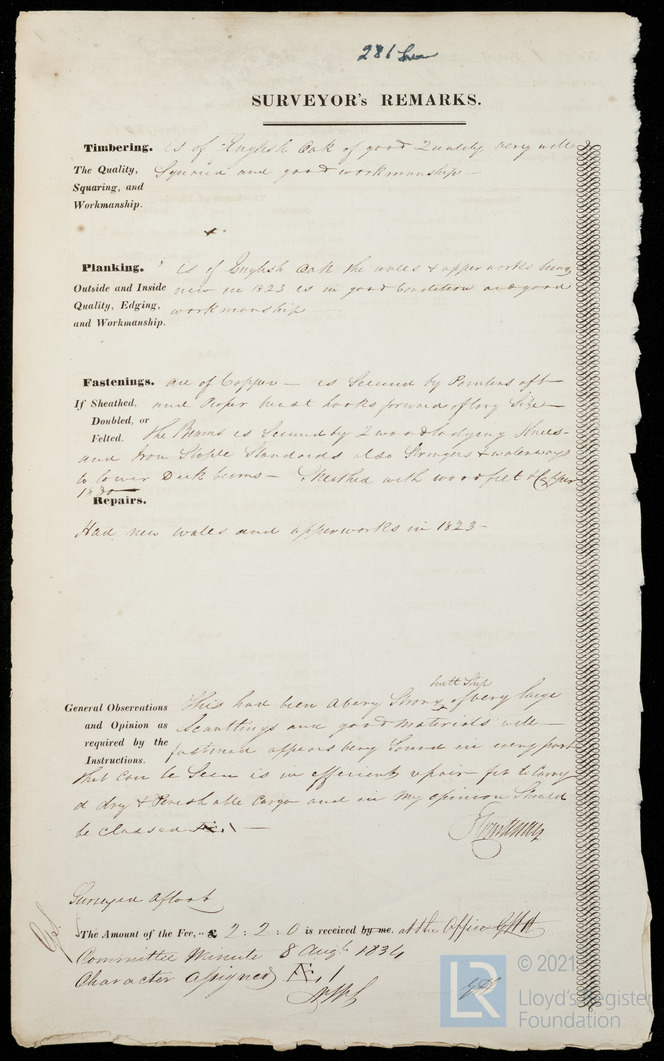 281
SURVEYOR's REMARKS.
Timbering. is of English Oak of good Quality very well
The Quality, Squared and good workmanship —
Squaring, and
Workmanship.
Planking. is of English Oak the wales & upperworks being
Outside and Inside new in 1823 is in good Condition and good
Quality, Edging, workmanship
and Workmanship.
Fastenings. are of Copper — is Secured by Pointers aft
If Sheathed, and Proper breast hooks forward of long Size —
Doubled, or
Felted. The Beams is Secured by 2 wood lodging Knees
and Iron Staple Standards also Stringers & waterways
to lower Deck beams — Sheathed with wood felt & Copper
1830
Repairs.
Had new wales and upperworks in 1823 —
built Ship
General Observations This had been a very Strong of very large
and Opinion as Scantlings and good materials well —
required by the fastened appears being Sound in every part
Instructions.
that can be Seen is in efficient repair fit to Carry
a dry & Perishable Cargo and in my opinion Should
be classed Æ.1 —
Surveyed afloat
The Amount of the Fee, £ 2 : 2 : 0 is received by me. at the Office
Committee Minute 8 Augt 1834
Character assigned Æ.1
LR
© 2021
Lloyd's Register
Foundation